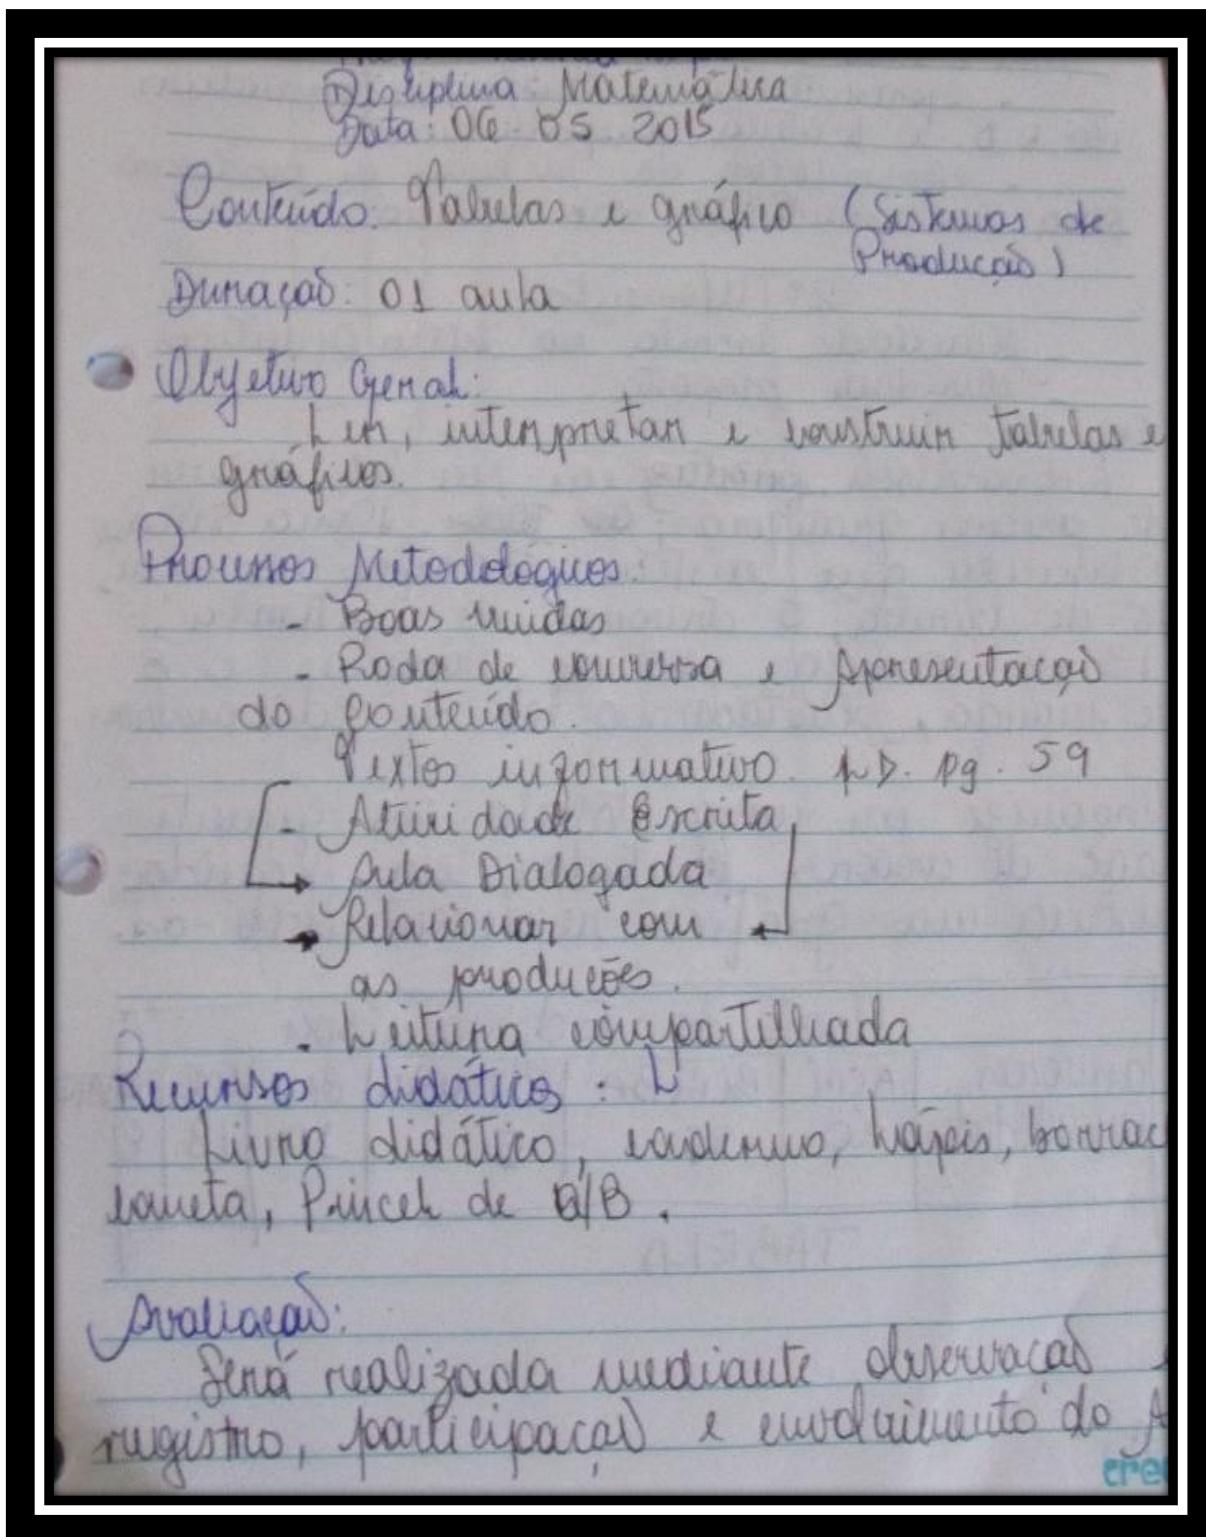 Disciplina: Matemática
Data: 06 05 2015
Conteúdo: Tabelas e gráfico (Sistemas de
Produção)
Duração: 01 aula
Objetivo Geral:
Ler, interpretar e construir tabelas e
gráficos.
Processos Metodológicos:
- Boas vindas
- Roda de conversa e Apresentação
do Conteúdo.
Textos informativo. LD. pg. 59
- Atividade Escrita
Aula Dialogada
Relacionar com
as produções.
- Leitura compartilhada
Recursos didáticos: L
Livro didático, caderno, Lápis, borrac
caneta, Pincel de Q/B.
Avaliação:
Será realizada mediante observação
registro, participação e envolvimento do A
cre